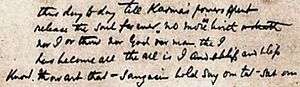 thus day by day till Karma's powers spent
release the soul forever, no more birth
nor I or thou nor God nor man, the I
has become all the all is I and bliss
Know. thou art that - Sanyasin bold say om tat - sat om